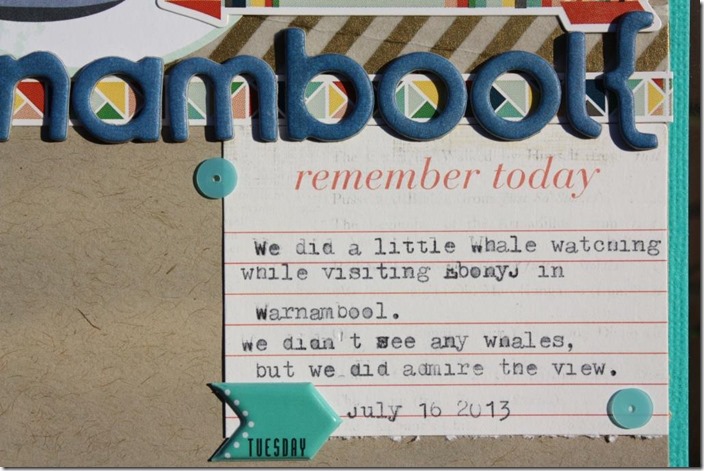 nambool{
remember today
We did a little Whale watching
while visiting EbonyJ in
Warnambool.
We didn't see any whales,
but we did admire the view.
July 16 2013
TUESDAY